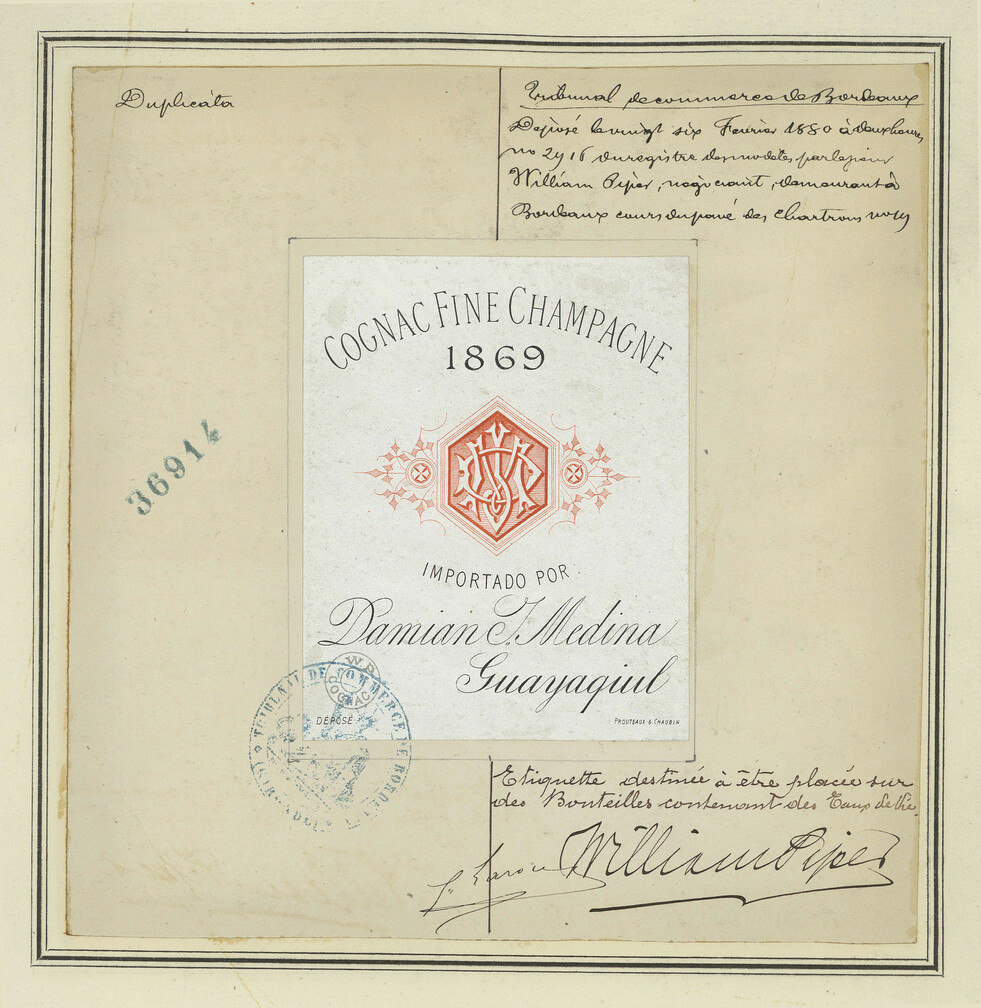 Duplicata
Tribunal de commerce de Bordeaux
Déposé le vingt six Fevrier 1880 à deux heures
no 2916 du registre des modeles par le sieur
William Piper, negociant, demeurant à
Bordeaux cours du pavé des Chartrons no
36914
COGNAC FINE CHAMPAGNE
1869
IMPORTADO POR
Damian J. Medina
Guayaqiul
W.P.
COGNAC
DÉPOSÉ
PROUTEAUX & CHAUBIN
TRIBUNAL DE COMMERCE DE BORDE
Etiquette destinée à être placée sur
des Bouteilles contenant des Eaux de Vie.
William Piper